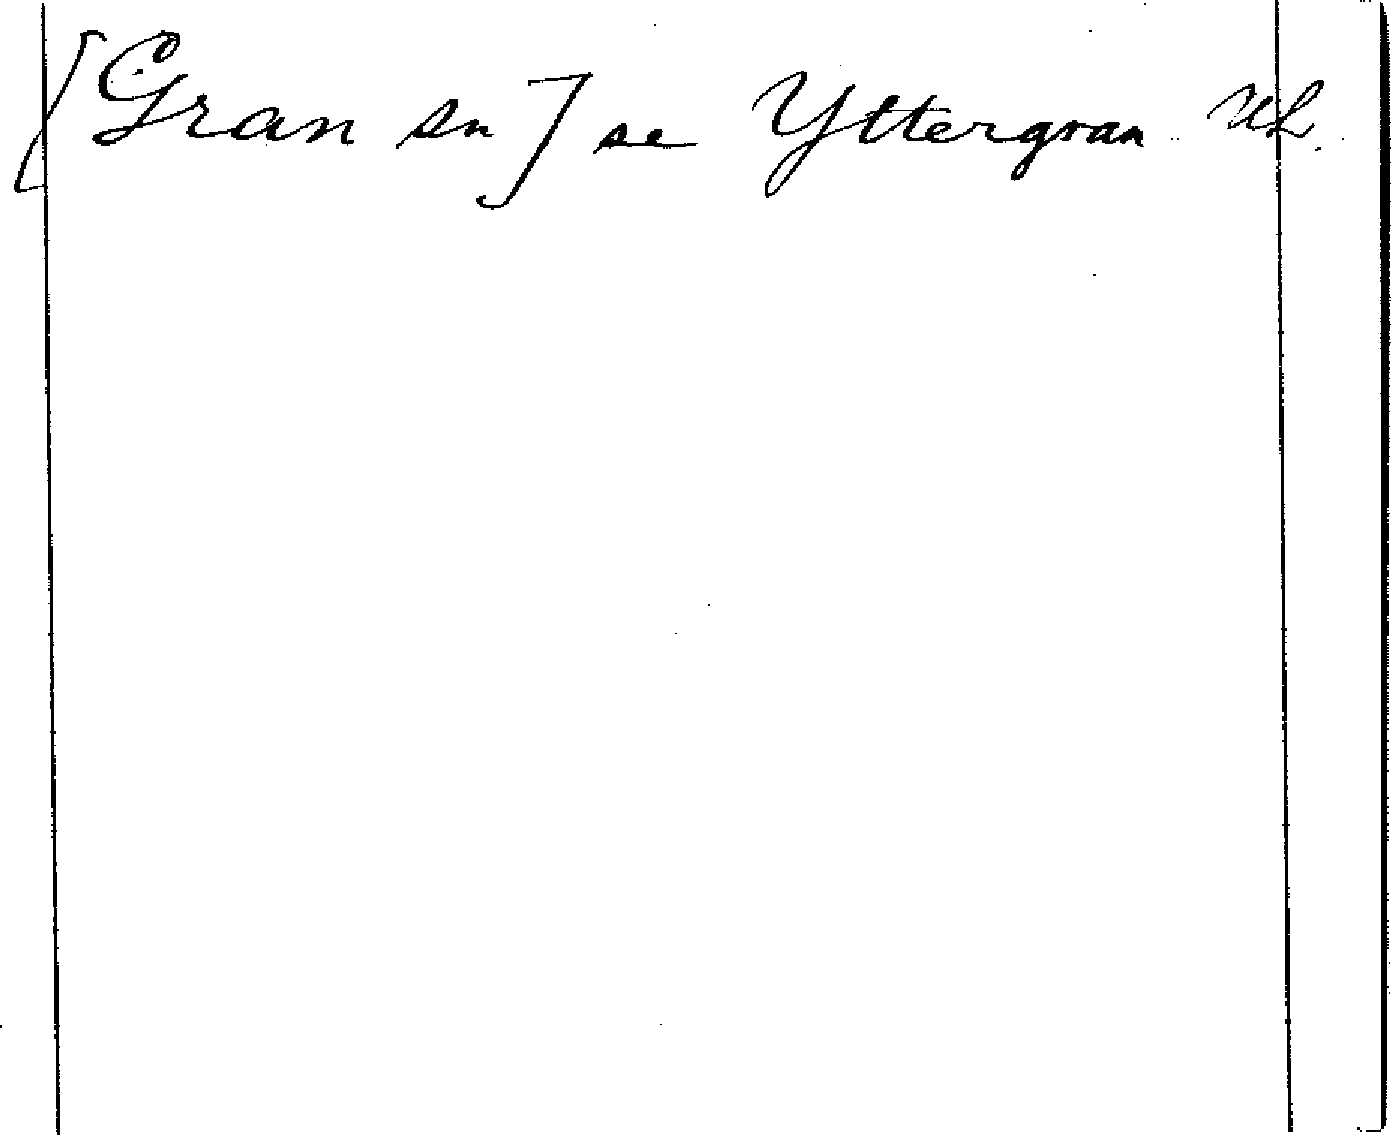 [Gran sn] se Yttergran UL.